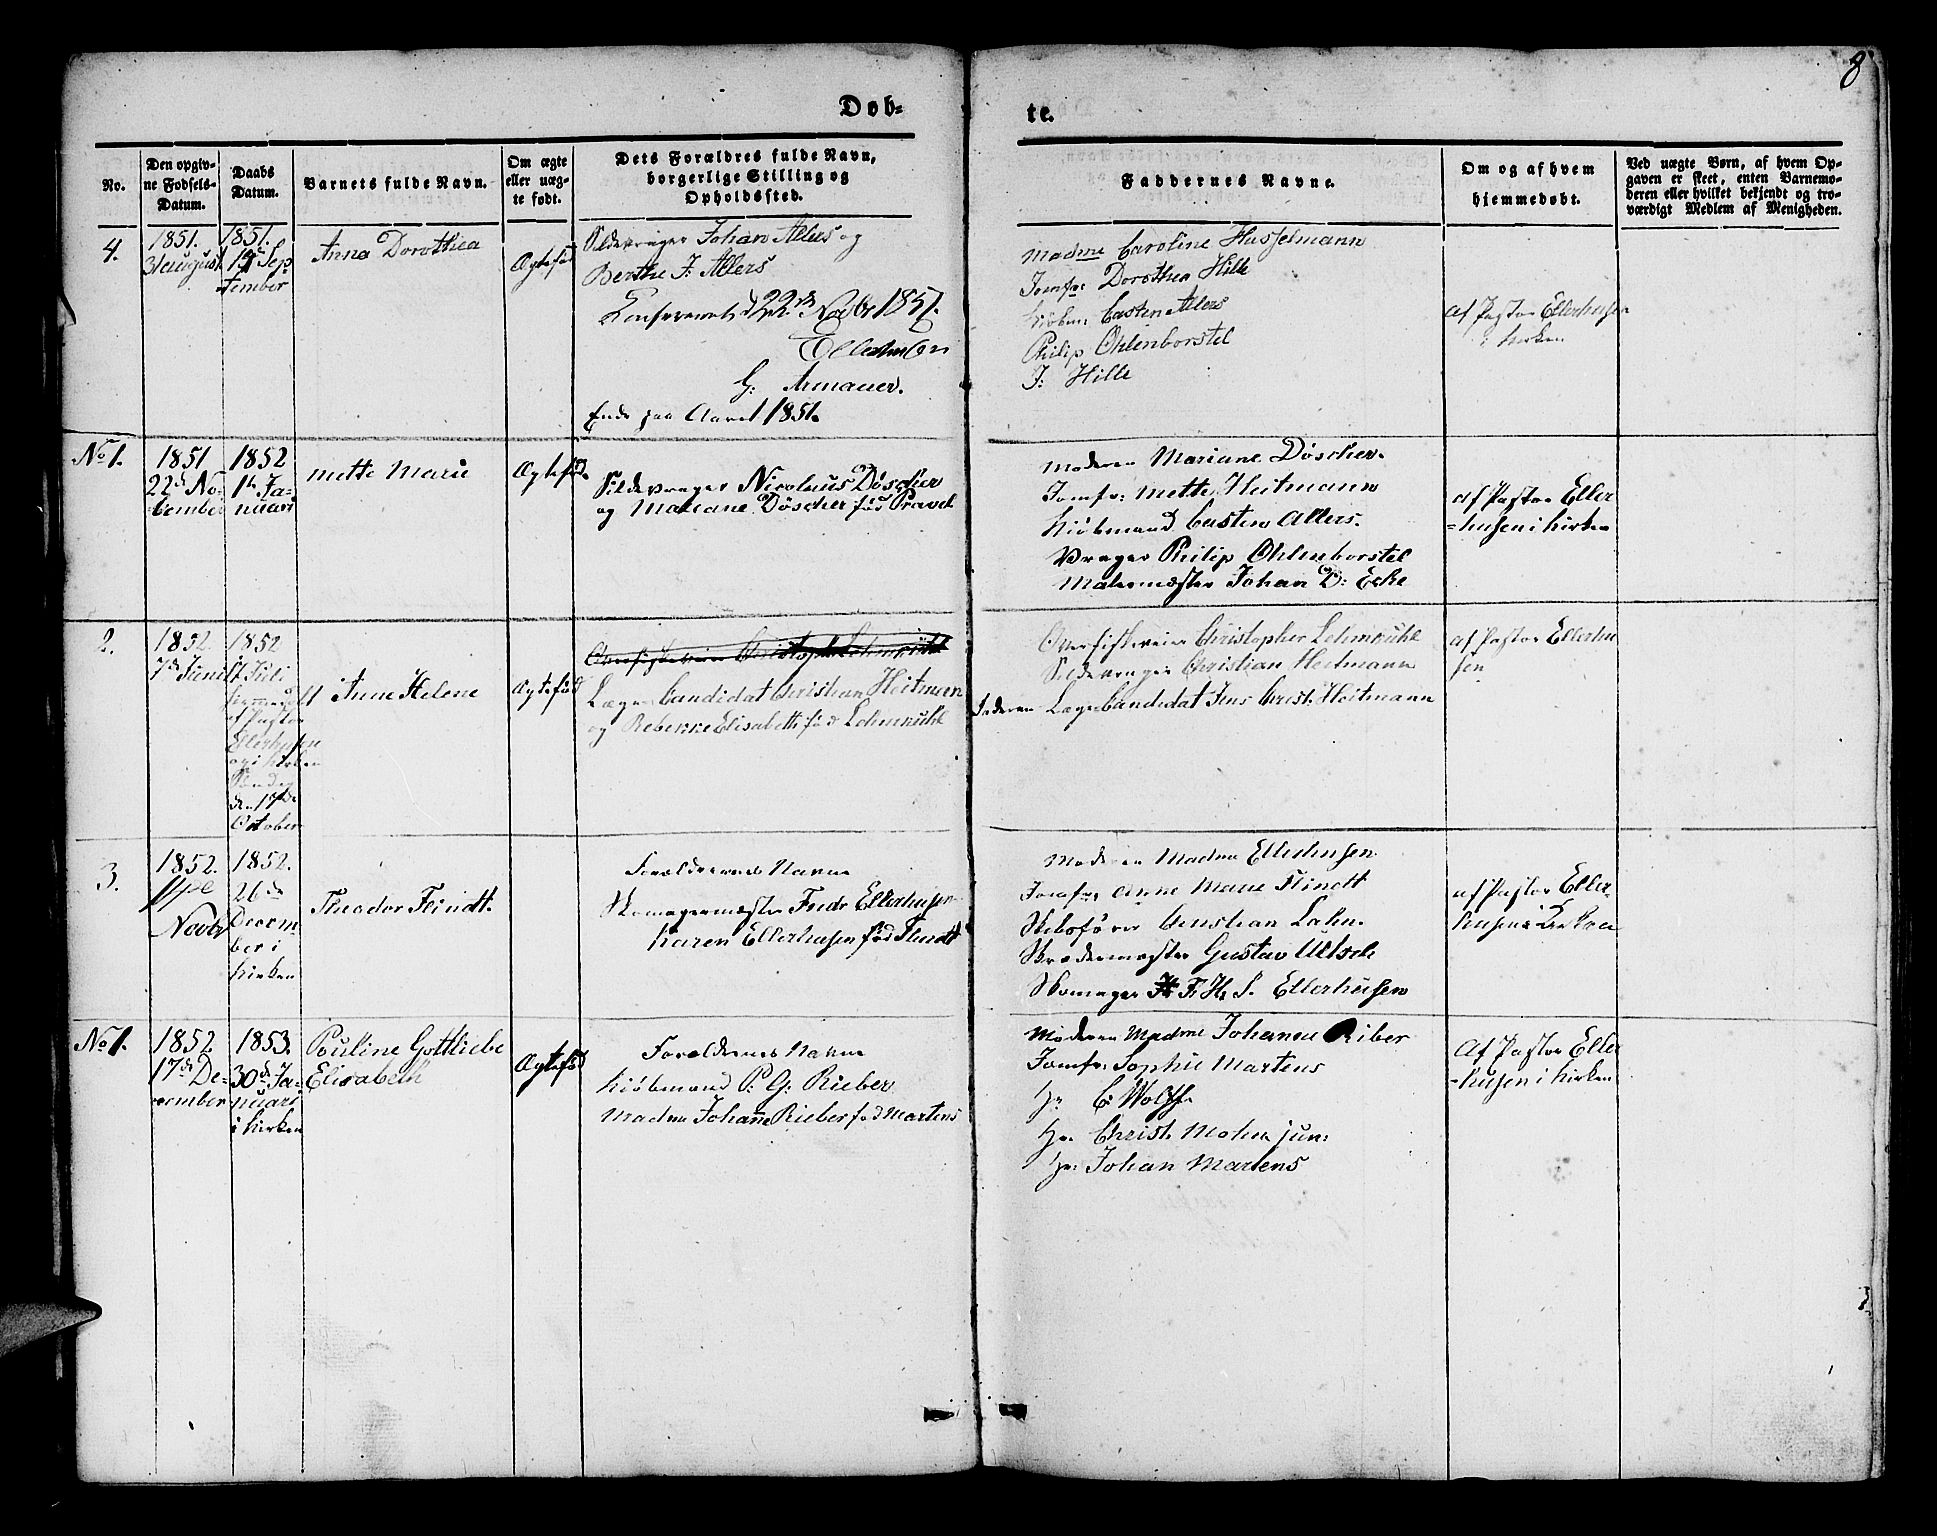 8
Døb-
te.
No.
Den opgiv-
ne Fødsels-
Datum.
Daabs
Datum.
Barnets fulde Navn.
Om ægte
eller uæg-
te født.
Dets Forældres fulde Navn,
borgerlige Stilling og
Opholdssted.
Faddernes Navne.
Om og af hvem
hjemmedøbt.
Ved uægte Børn, af hvem Op-
gaven er skeet, enten Barnemo-
deren eller hvilket bekjendt og tro-
værdigt Medlem af Menigheden.
4.
1851.
31 august
1851.
19 Sep
tember
Anna Dorothea
Ægtefød
Sildevrager Johan Allers og
Berthe J: Allers
Confereret d 22de Novbr 1851.
Ellerhusen
G: Armauer.
Ende paa Aaret 1851.
Madme Caroline Husselmann
Jomfr: Dorothea Hille
Kiøbm: Casten Allers
Philip Ohlenborstel
J: Hille
af Pastor Ellerhusen
i Kirken
No 1.
1851
22d No-
vember
1852
1st Ja-
nuari
Mette Marie
Ægtefød
Sildevrager Nicolaus Döscher
og Mariane Döscher fød Pravel
Moderen Mariane Döscher.
Jomfr: Mette Heitmann
Kiøbmand Casten Allers.
Vrager Philip Ohlenborstel
Malermester Johan D: Ecke
af Pastor Eller
=husen i Kirken
2.
1852.
7de Juni
1852
Juli
hjemmedøbt
af Pastor
Ellerhusen
og i Kirken
Søndag
den 17de
October
Anne Helene
Ægtefød
Christoph Lehmkühl
Læge Candidat Christian Heitmann
og Rebekke Elisabeth fød Lehmkühl
Christopher Lehmkühl
Sildevrager Christian Heitmann
Faderen Læge Candidat Jens Christ. Heitmann
af Pastor Ellerhu
sen
3.
1852.
Novbr
1852.
26de
Decem
ber i
Kirken
Theodor Flindt.
Forældrenes Navne
Skomagermester Fredr Ellerhusen
Karen Ellerhusen fød Flindt
Moderen Madme Ellerhusen
Jomfr: Anne Marie Flindt
Christian Lahn.
Skrædermester Gustav
Skomager F. H. S. Ellerhusen
af Pastor Eller
husen i Kirken
No 1.
1852
17de De-
cember
1853.
30de Ja-
nuari
i Kirken
Pauline Gottliebe
Elisabeth
Ægtefød
Forældrenes Navne
Kiøbmand P: G: Rieber
Madme Johanne Rieber fød Martens
Moderen Madme Johanne Riber
Jomfr: Sophie Martens
Hr C: Wolff
Hr. Christ. Mohn jun:
Hr: Johan Martens
Af Pastor Eller
=husen i Kirken